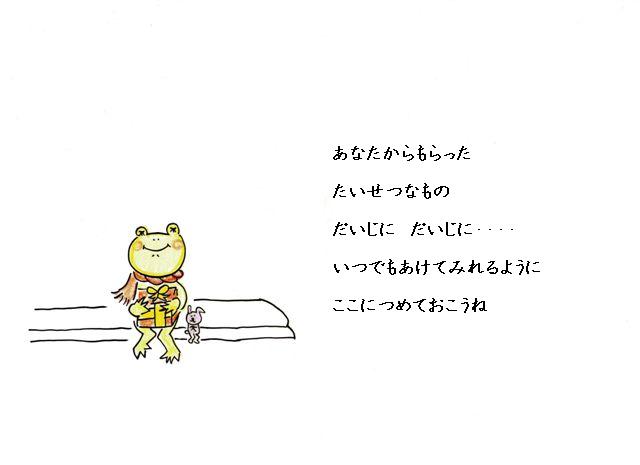 あなたからもらった
たいせつなもの
だいじに　だいじに‥‥
いつでもあけてみれるように
ここにつめておこうね